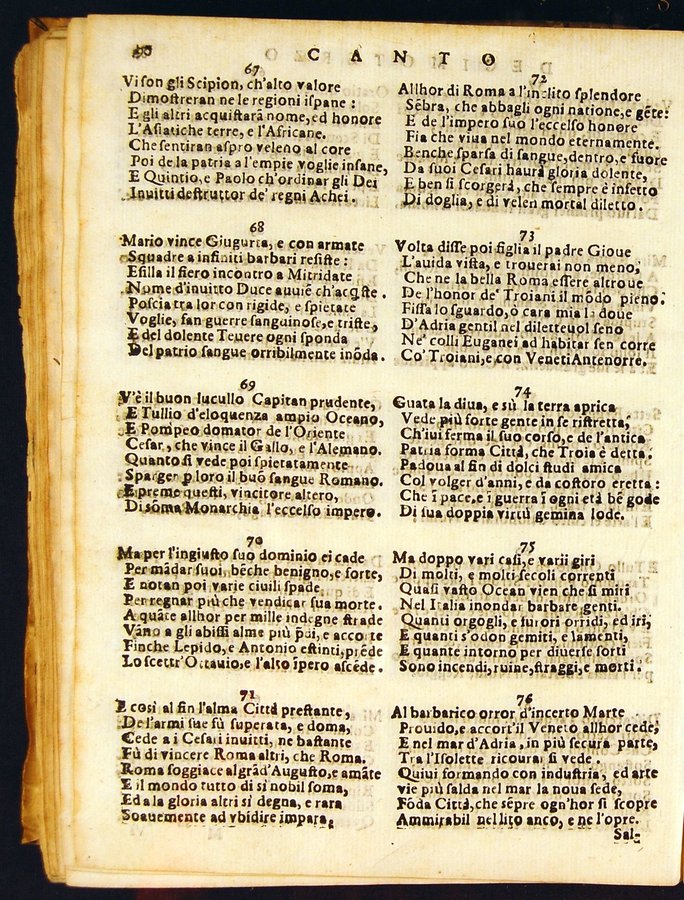 90
CANTO
67
Vi son gli Scipion, ch'alto valore
Dimoſtreran ne le regioni iſpane :
E gli altri acquiſtarā nome, ed honore
L'Aſiatiche terre, e l'Africane.
Che ſentiran aſpro veleno al core
Poi de la patria a l'empie voglie inſane,
E Quintio, e Paolo ch'ordinar gli Dei
Inuitti deſtruttor de' regni Achei.
68
Mario vince Giugurta, e con armate
Squadre a infiniti barbari reſiſte :
Eſilla il fiero incontro a Mitridate
Nome d'inuitto Duce auuiē ch'acq́ſte.
Poſcia tra lor con rigide, e ſpietate
Voglie, fan guerre ſanguinoſe, e triſte,
E del dolente Teuere ogni ſponda
Del patrio ſangue orribilmente inōda.
69
V'è il buon lucullo Capitan prudente,
E Tullio d'eloquenza ampio Oceano,
E Pompeo domator de l'Oriente
Ceſar, che vince il Gallo, e l'Alemano.
Quanto ſi vede poi ſpietatamente
Sparger p loro il buō ſangue Romano.
E preme queſti, vincitore altero,
Di sōma Monarchia l'eccelſo impero.
70
Ma per l'ingiuſto ſuo dominio ei cade
Per mādar ſuoi, bēche benigno, e forte,
E notan poi varie ciuili ſpade
Per regnar più che vendicar ſua morte.
A quāte allhor per mille indegne ſtrade
Vāno a gli abiſſi alme più p̄di, e accorte
Finche Lepido, e Antonio eſtinti, prēde
Lo ſcettr' Ottauio, e l'alto īpero aſcēde.
71
E così al fin l'alma Città preſtante,
De l'armi ſue fù ſuperata, e doma,
Cede a i Ceſari inuitti, ne baſtante
Fù di vincere Roma altri, che Roma.
Roma ſoggiace al grād'Auguſto, e amāte
E il mondo tutto di sì nobil ſoma,
Ed a la gloria altri ſi degna, e rara
Soauemente ad vbidire impara,
72
Allhor di Roma a l'inclito ſplendore
Sēbra, che abbagli ogni natione, e gēte:
E de l'impero ſuo l'eccelſo honore
Fia che viua nel mondo eternamente.
Benche ſparſa di ſangue, dentro, e fuore
Da ſuoi Ceſari haurà gloria dolente,
E ben ſi ſcorgerà, che ſempre è infetto
Di doglia, e di velen mortal diletto.
73
Volta diſſe poi figlia il padre Gioue
L'auida viſta, e trouerai non meno,
Che ne la bella Roma eſſere altroue
De l'honor de' Troiani il mōdo pieno.
Fiſſa lo ſguardo, ò cara mia là doue
D'Adria gentil nel diletteuol ſeno
Ne' colli Euganei ad habitar ſen corre
Co' Troiani, e con Veneti Antenorre.
74
Guata la diua, e sù la terra aprica
Vede più forte gente in ſe riſtretta,
Ch'iui ferma il ſuo corſo, e de l'antica
Patria forma Città, che Troia è detta.
Padoua al fin di dolci ſtudi amica
Col volger d'anni, e da coſtoro eretta :
Che ī pace, e ī guerra ī ogni età bē gode
Di ſua doppia virtù gemina lode.
75
Ma doppo vari caſi, e varii giri
Di molti, e molti ſecoli correnti
Quaſi vaſto Ocean vien che ſi miri
Nel Italia inondar barbare genti.
Quanti orgogli, e furori orridi, ed iri,
E quanti s'odon gemiti, e lamenti,
E quante intorno per diuerſe ſorti
Sono incendi, ruine, ſtraggi, e morti.
76
Al barbarico orror d'incerto Marte
Prouido, e accort'il Veneto allhor cede,
E nel mar d'Adria, in più ſecura parte,
Tra l'Iſolette ricourar ſi vede.
Quiui formando con induſtria, ed arte
vie più ſalda nel mar la noua ſede,
Fōda Città, che sēpre ogn'hor ſi ſcopre
Ammirabil nel lito anco, e ne l'opre.
Sal-